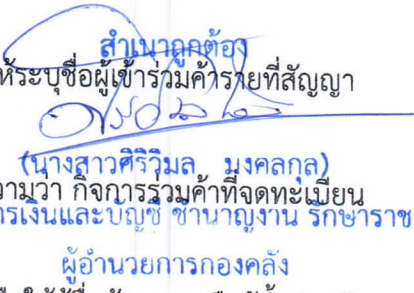 สำเนาถูกต้อง
ให้ระบุชื่อผู้เข้าร่วมค้ารายที่สัญญา
(นางสาวศิริวิมล มงคลกุล)
ความว่า กิจการร่วมค้าที่จดทะเบียน
การเงินและบัญชี ชำนาญงาน รักษาราช
ผู้อำนวยการกองคลัง